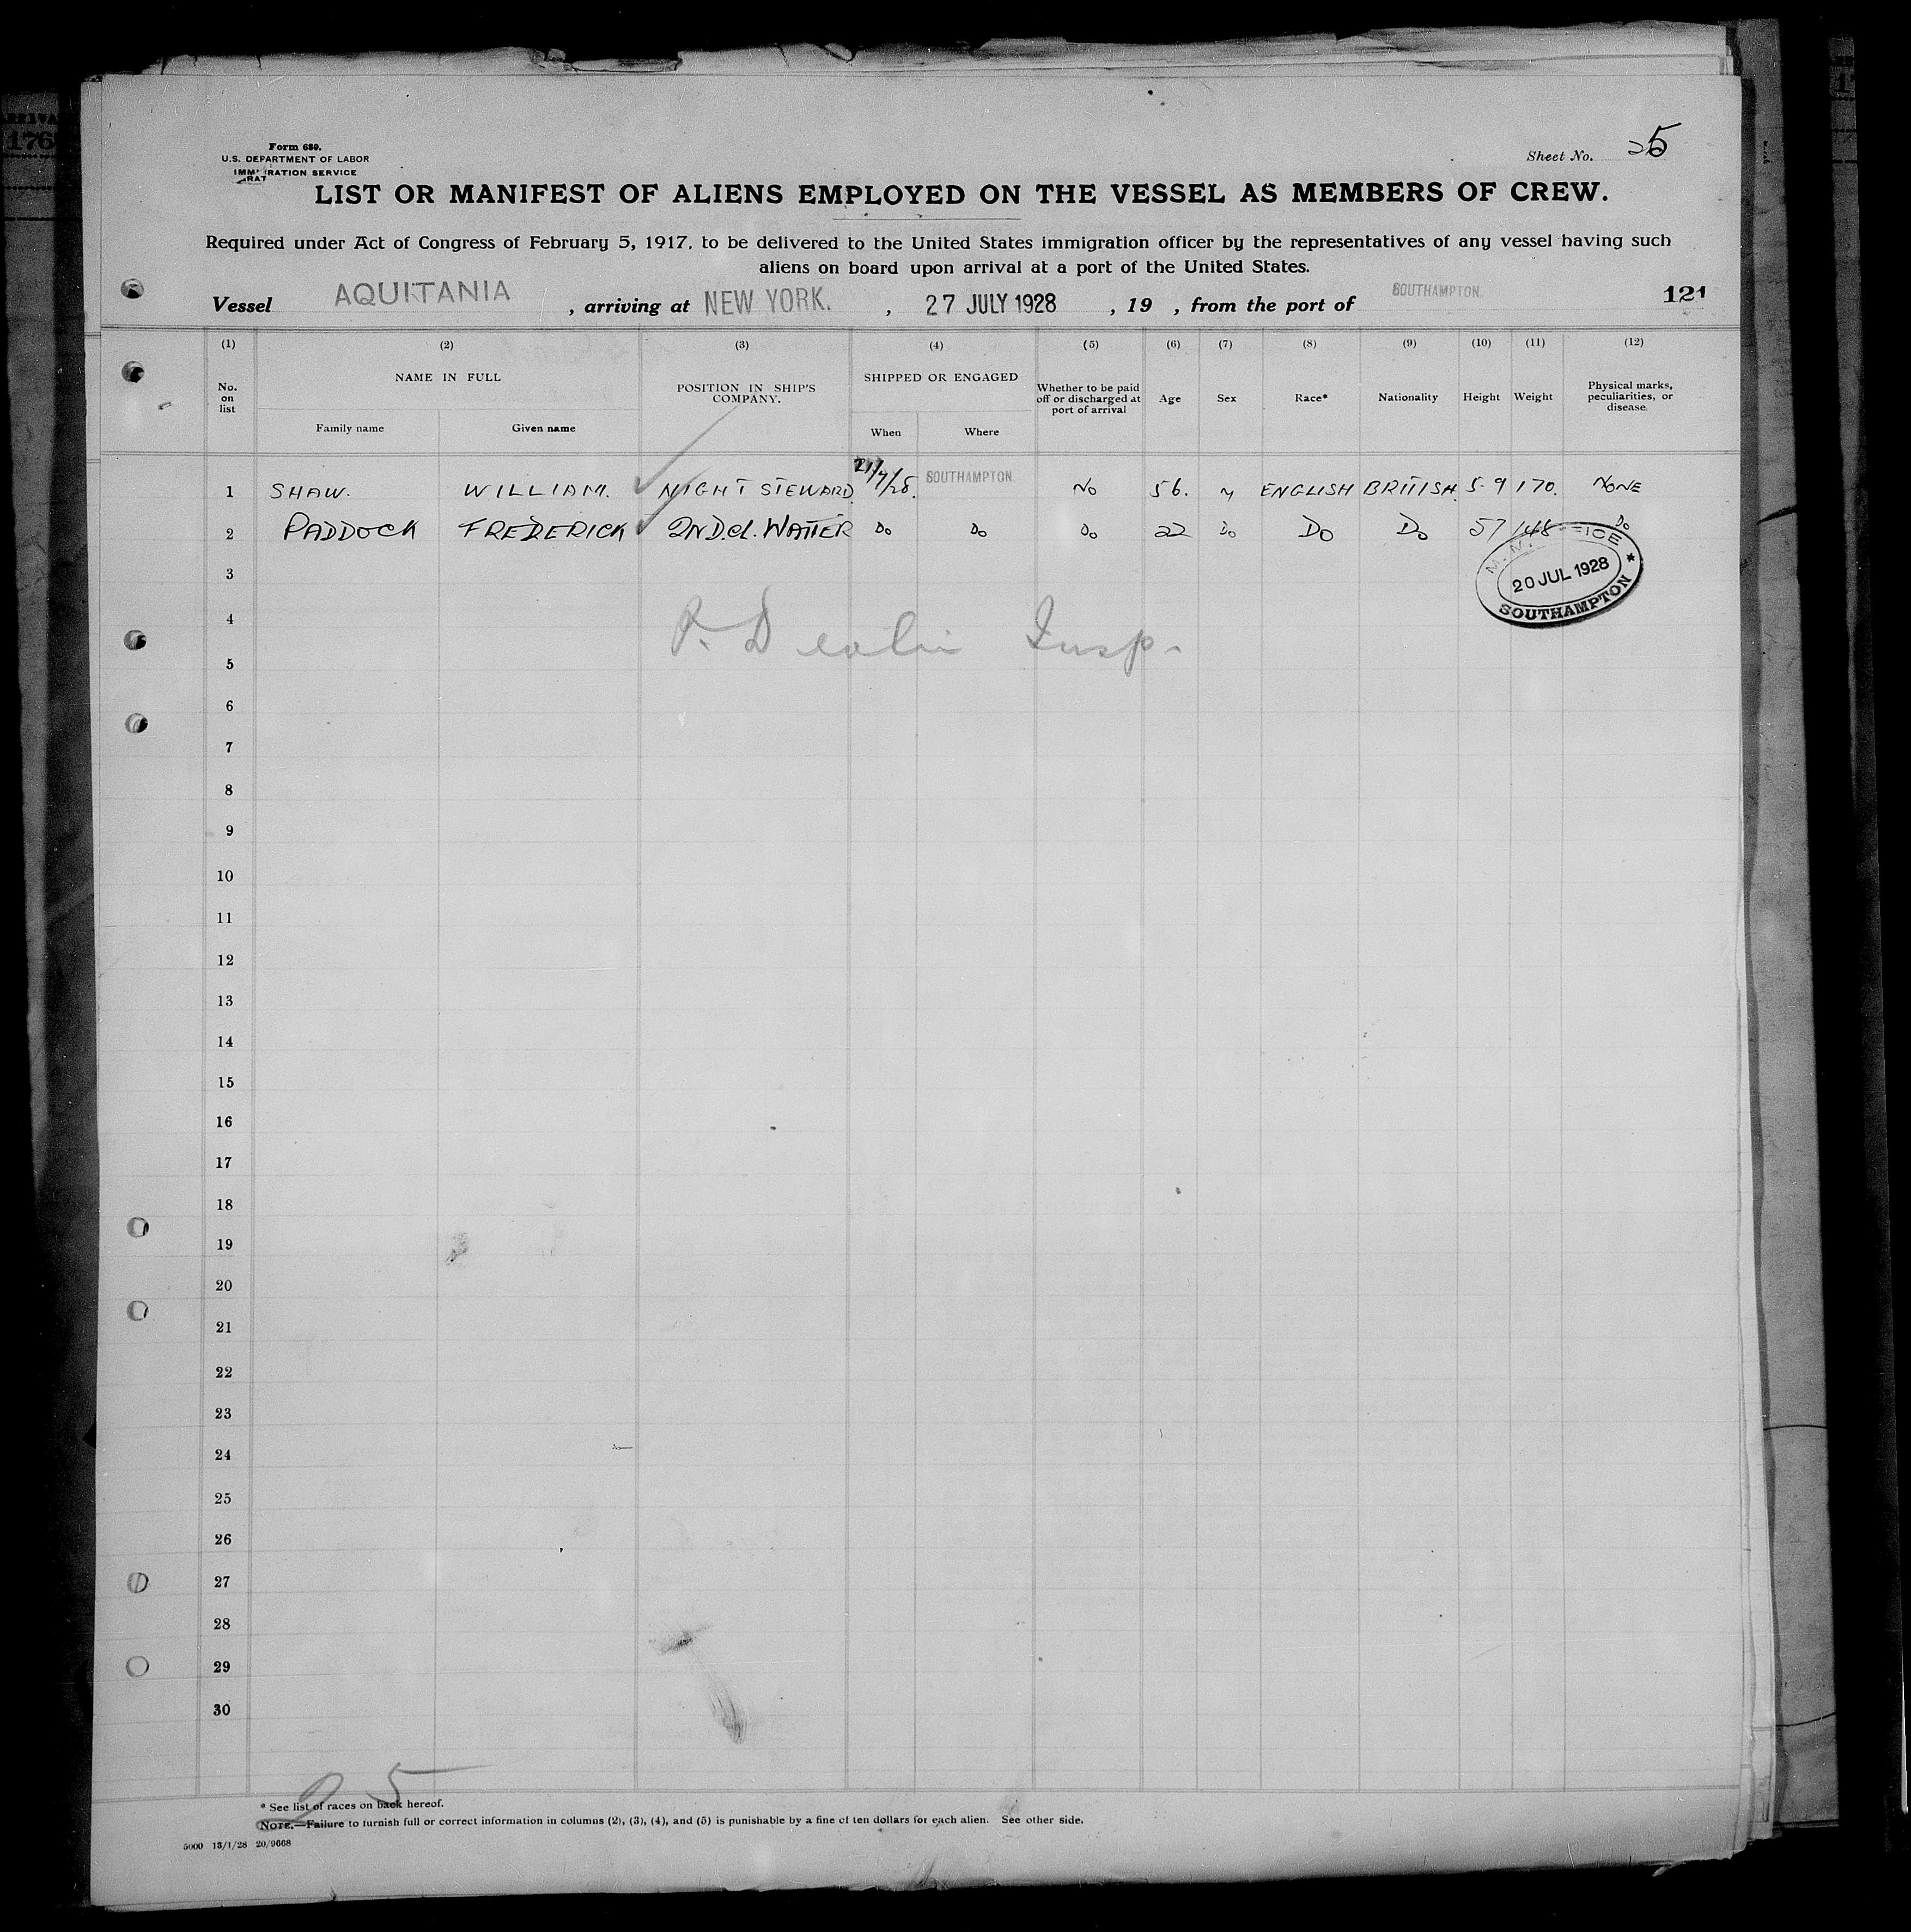 Form 680.
U.S. DEPARTMENT OF LABOR
IMMIGRATION SERVICE
Sheet No. 25
LIST OR MANIFEST OF ALIENS EMPLOYED ON THE VESSEL AS MEMBERS OF CREW.
Required under Act of Congress of February 5, 1917, to be delivered to the United States immigration officer by the representatives of any vessel having such
aliens on board upon arrival at a port of the United States.
Vessel AQUITANIA, arriving at NEW YORK. , 27 JULY 1928 , 19 , from the port of SOUTHAMPTON. 121
(1) (2) (3) (4) (5) (6) (7) (8) (9) (10) (11) (12)
No. on list NAME IN FULL Family name Given name POSITION IN SHIP'S COMPANY. SHIPPED OR ENGAGED When Where Whether to be paid off or discharged at port of arrival Age Sex Race* Nationality Height Weight Physical marks, peculiarities, or disease.
1 SHAW. WILLIAM. NIGHT STEWARD. 21/7/28. SOUTHAMPTON. No 56. M ENGLISH BRITISH. 5-9 170. NONE
2 PADDOCK FREDERICK 2ND.Cl. WAITER Do Do Do 22 Do Do Do 57 148 Do
M. M. OFFICE
20 JUL 1928
SOUTHAMPTON
3
4
P. D Insp.
5
6
7
8
9
10
11
12
13
14
15
16
17
18
19
20
21
22
23
24
25
26
27
28
29
30
25
* See list of races on back hereof.
NOTE.—Failure to furnish full or correct information in columns (2), (3), (4), and (5) is punishable by a fine of ten dollars for each alien. See other side.
5000 13/1/28 20/9668